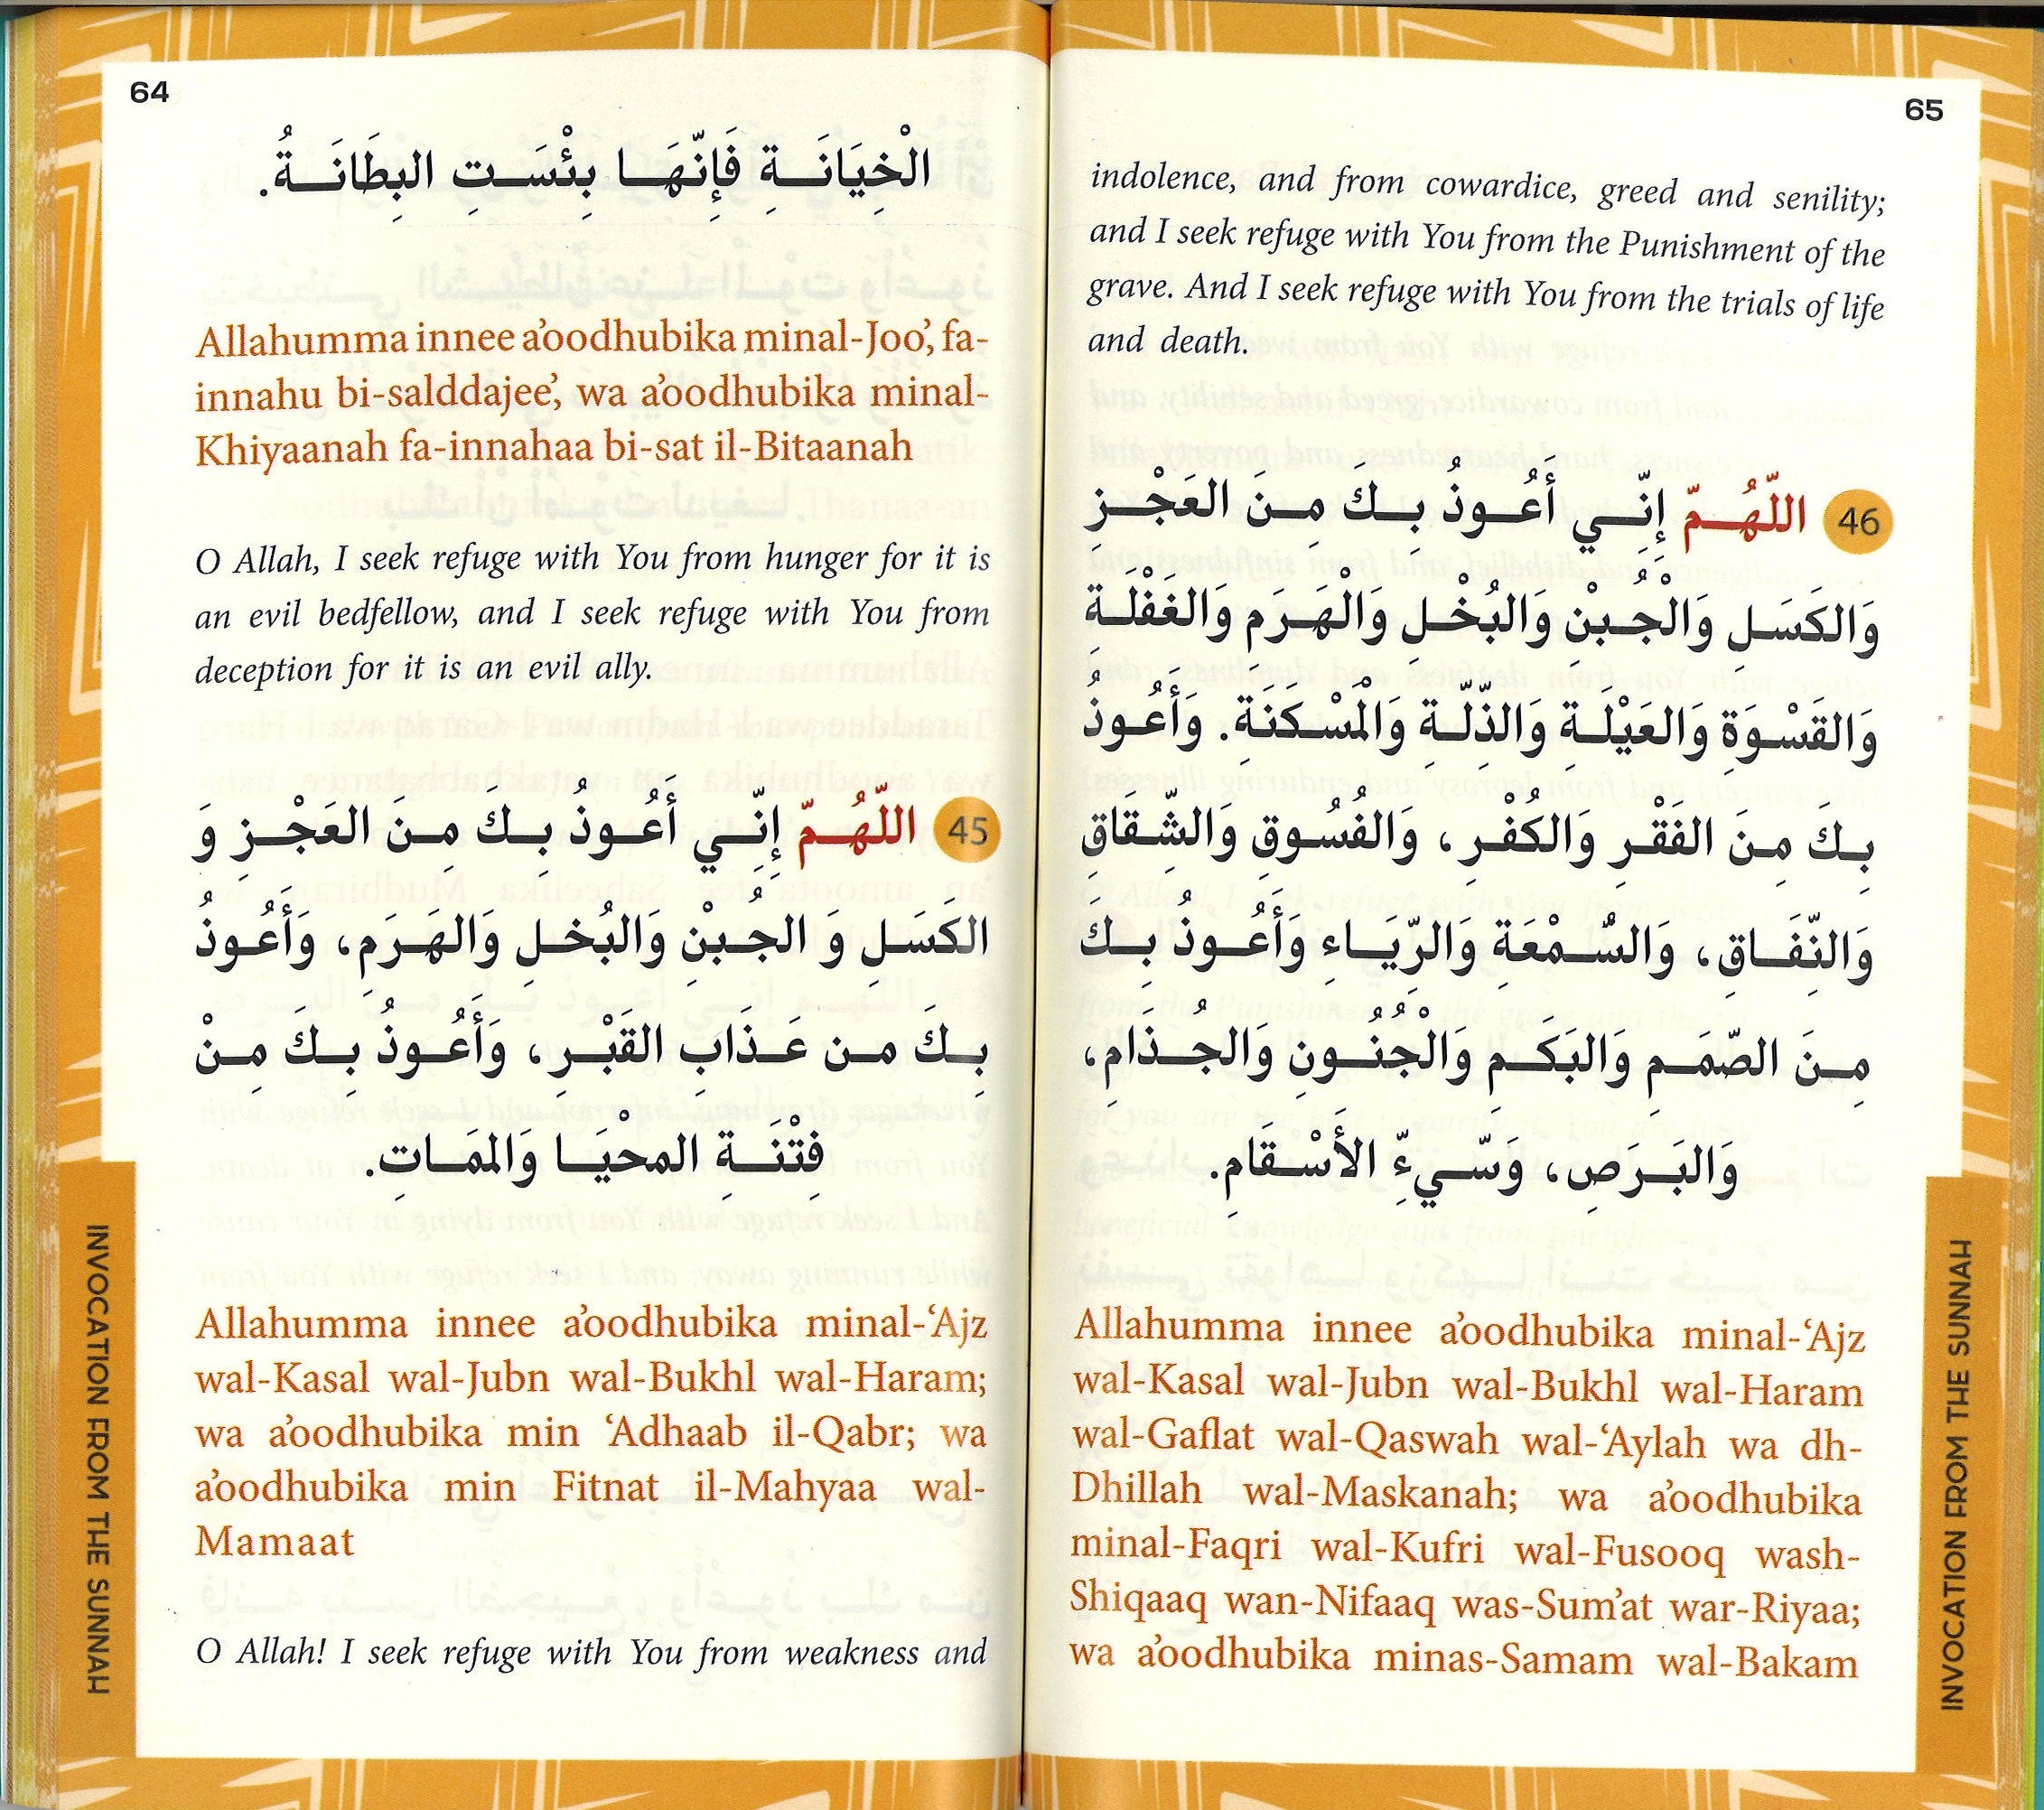 64
الْخِيَانَةِ فَإِنَّهَا بِئْسَتِ البِطَانَةُ.
Allahumma innee a’oodhubika minal-Joo’, fa-
innahu bi-salddajee’, wa a’oodhubika minal-
Khiyaanah fa-innahaa bi-sat il-Bitaanah
O Allah, I seek refuge with You from hunger for it is
an evil bedfellow, and I seek refuge with You from
deception for it is an evil ally.
45 اللّهُمّ إِنِّي أَعُوذُ بِكَ مِنَ العَجْزِ وَ
الكَسَلِ وَ الجُبْنِ وَالبُخلِ وَالهَرَمِ، وَأَعُوذُ
بِكَ من عَذَابِ القَبْرِ، وَأَعُوذُ بِكَ مِنْ
فِتْنَةِ المحْيَا وَالممَاتِ.
Allahumma innee a’oodhubika minal-‘Ajz
wal-Kasal wal-Jubn wal-Bukhl wal-Haram;
wa a’oodhubika min ‘Adhaab il-Qabr; wa
a’oodhubika min Fitnat il-Mahyaa wal-
Mamaat
O Allah! I seek refuge with You from weakness and
INVOCATION FROM THE SUNNAH
65
indolence, and from cowardice, greed and senility;
and I seek refuge with You from the Punishment of the
grave. And I seek refuge with You from the trials of life
and death.
46 اللّهُمّ إِنِّي أَعُوذُ بِكَ مِنَ العَجْزِ
وَالكَسَلِ وَالْجُبْنِ وَالبُخْلِ وَالْهَرَمِ وَالغَفْلَةِ
وَالقَسْوَةِ وَالعَيْلَةِ وَالذِّلَّةِ وَالْمَسْكَنَةِ. وَأَعُوذُ
بِكَ مِنَ الفَقْرِ وَالكُفْرِ، وَالفُسُوقِ وَالشِّقَاقِ
وَالنِّفَاقِ، وَالسُّمْعَةِ وَالرِّيَاءِ وَأَعُوذُ بِكَ
مِنَ الصَّمَمِ وَالبَكَمِ وَالْجُنُونِ وَالجُذَامِ،
وَالبَرَصِ، وَسّيءِّ الأَسْقَامِ.
Allahumma innee a’oodhubika minal-‘Ajz
wal-Kasal wal-Jubn wal-Bukhl wal-Haram
wal-Gaflat wal-Qaswah wal-‘Aylah wa dh-
Dhillah wal-Maskanah; wa a’oodhubika
minal-Faqri wal-Kufri wal-Fusooq wash-
Shiqaaq wan-Nifaaq was-Sum’at war-Riyaa;
wa a’oodhubika minas-Samam wal-Bakam
INVOCATION FROM THE SUNNAH